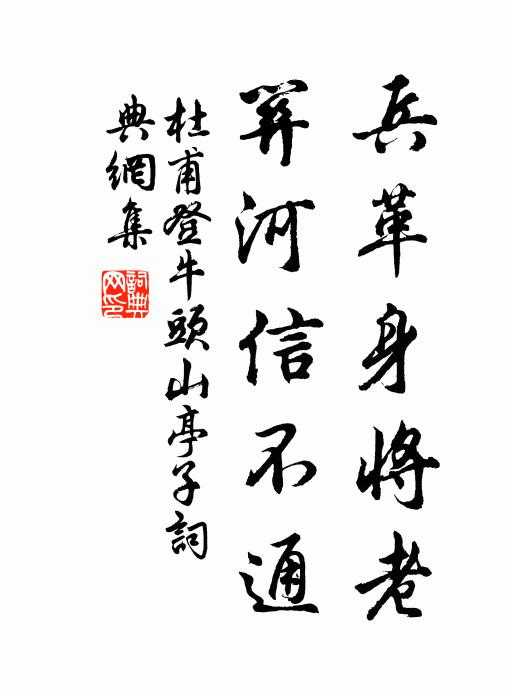 兵革身將老
關河信不通
杜甫登牛頭山亭子詞
典網集
詞典网印